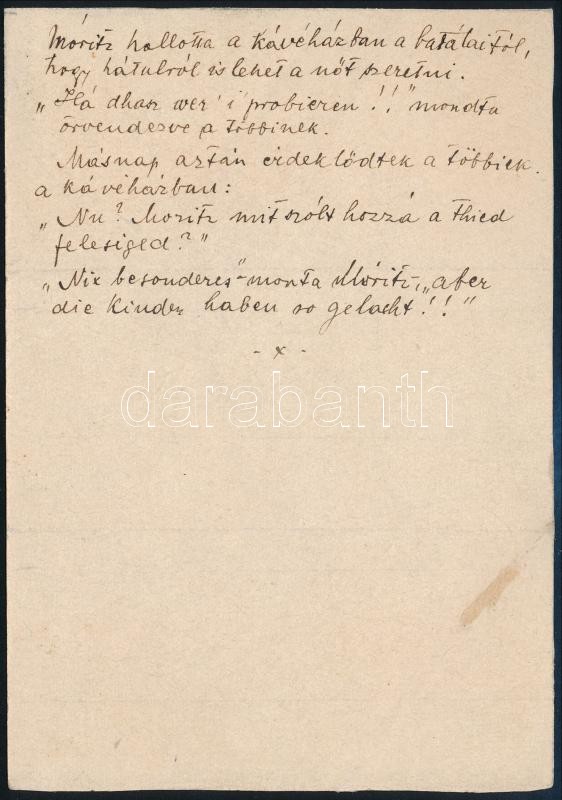 Móritz hallotta a kávéházban a batátaitól,
hogy hátulról is lehet a nőt szeretni.
„Há dhasz wer' i probieren!!" mondta
örvendezve a többinek.
Másnap aztán érdeklődtek a többiek
a kávéházban:
„Nu? Moritz mit szólt hozzá a thied
feleséged?"
„Nix besonderes" - monta Móritz, „aber
die Kinder haben so gelacht!!"
- x -
darabanth